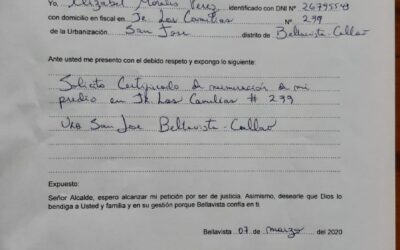 Yo, Elizabel Morales Perez identificado con DNI N° 26795549
con domicilio en fiscal en Jr. Las Camilias N° 239
de la Urbanización San Jose distrito de Bellavista-Callao
Ante usted me presento con el debido respeto y expongo lo siguiente:
Solicito Certificado de numeración de mi
predio en Jr. Las Camilias # 239
Urb San Jose Bellavista-Callao
Expuesto:
Señor Alcalde, espero alcanzar mi petición por ser de justicia. Asimismo, desearle que Dios lo
bendiga a Usted y familia y en su gestión porque Bellavista confía en ti.
Bellavista 07 de marzo del 2020